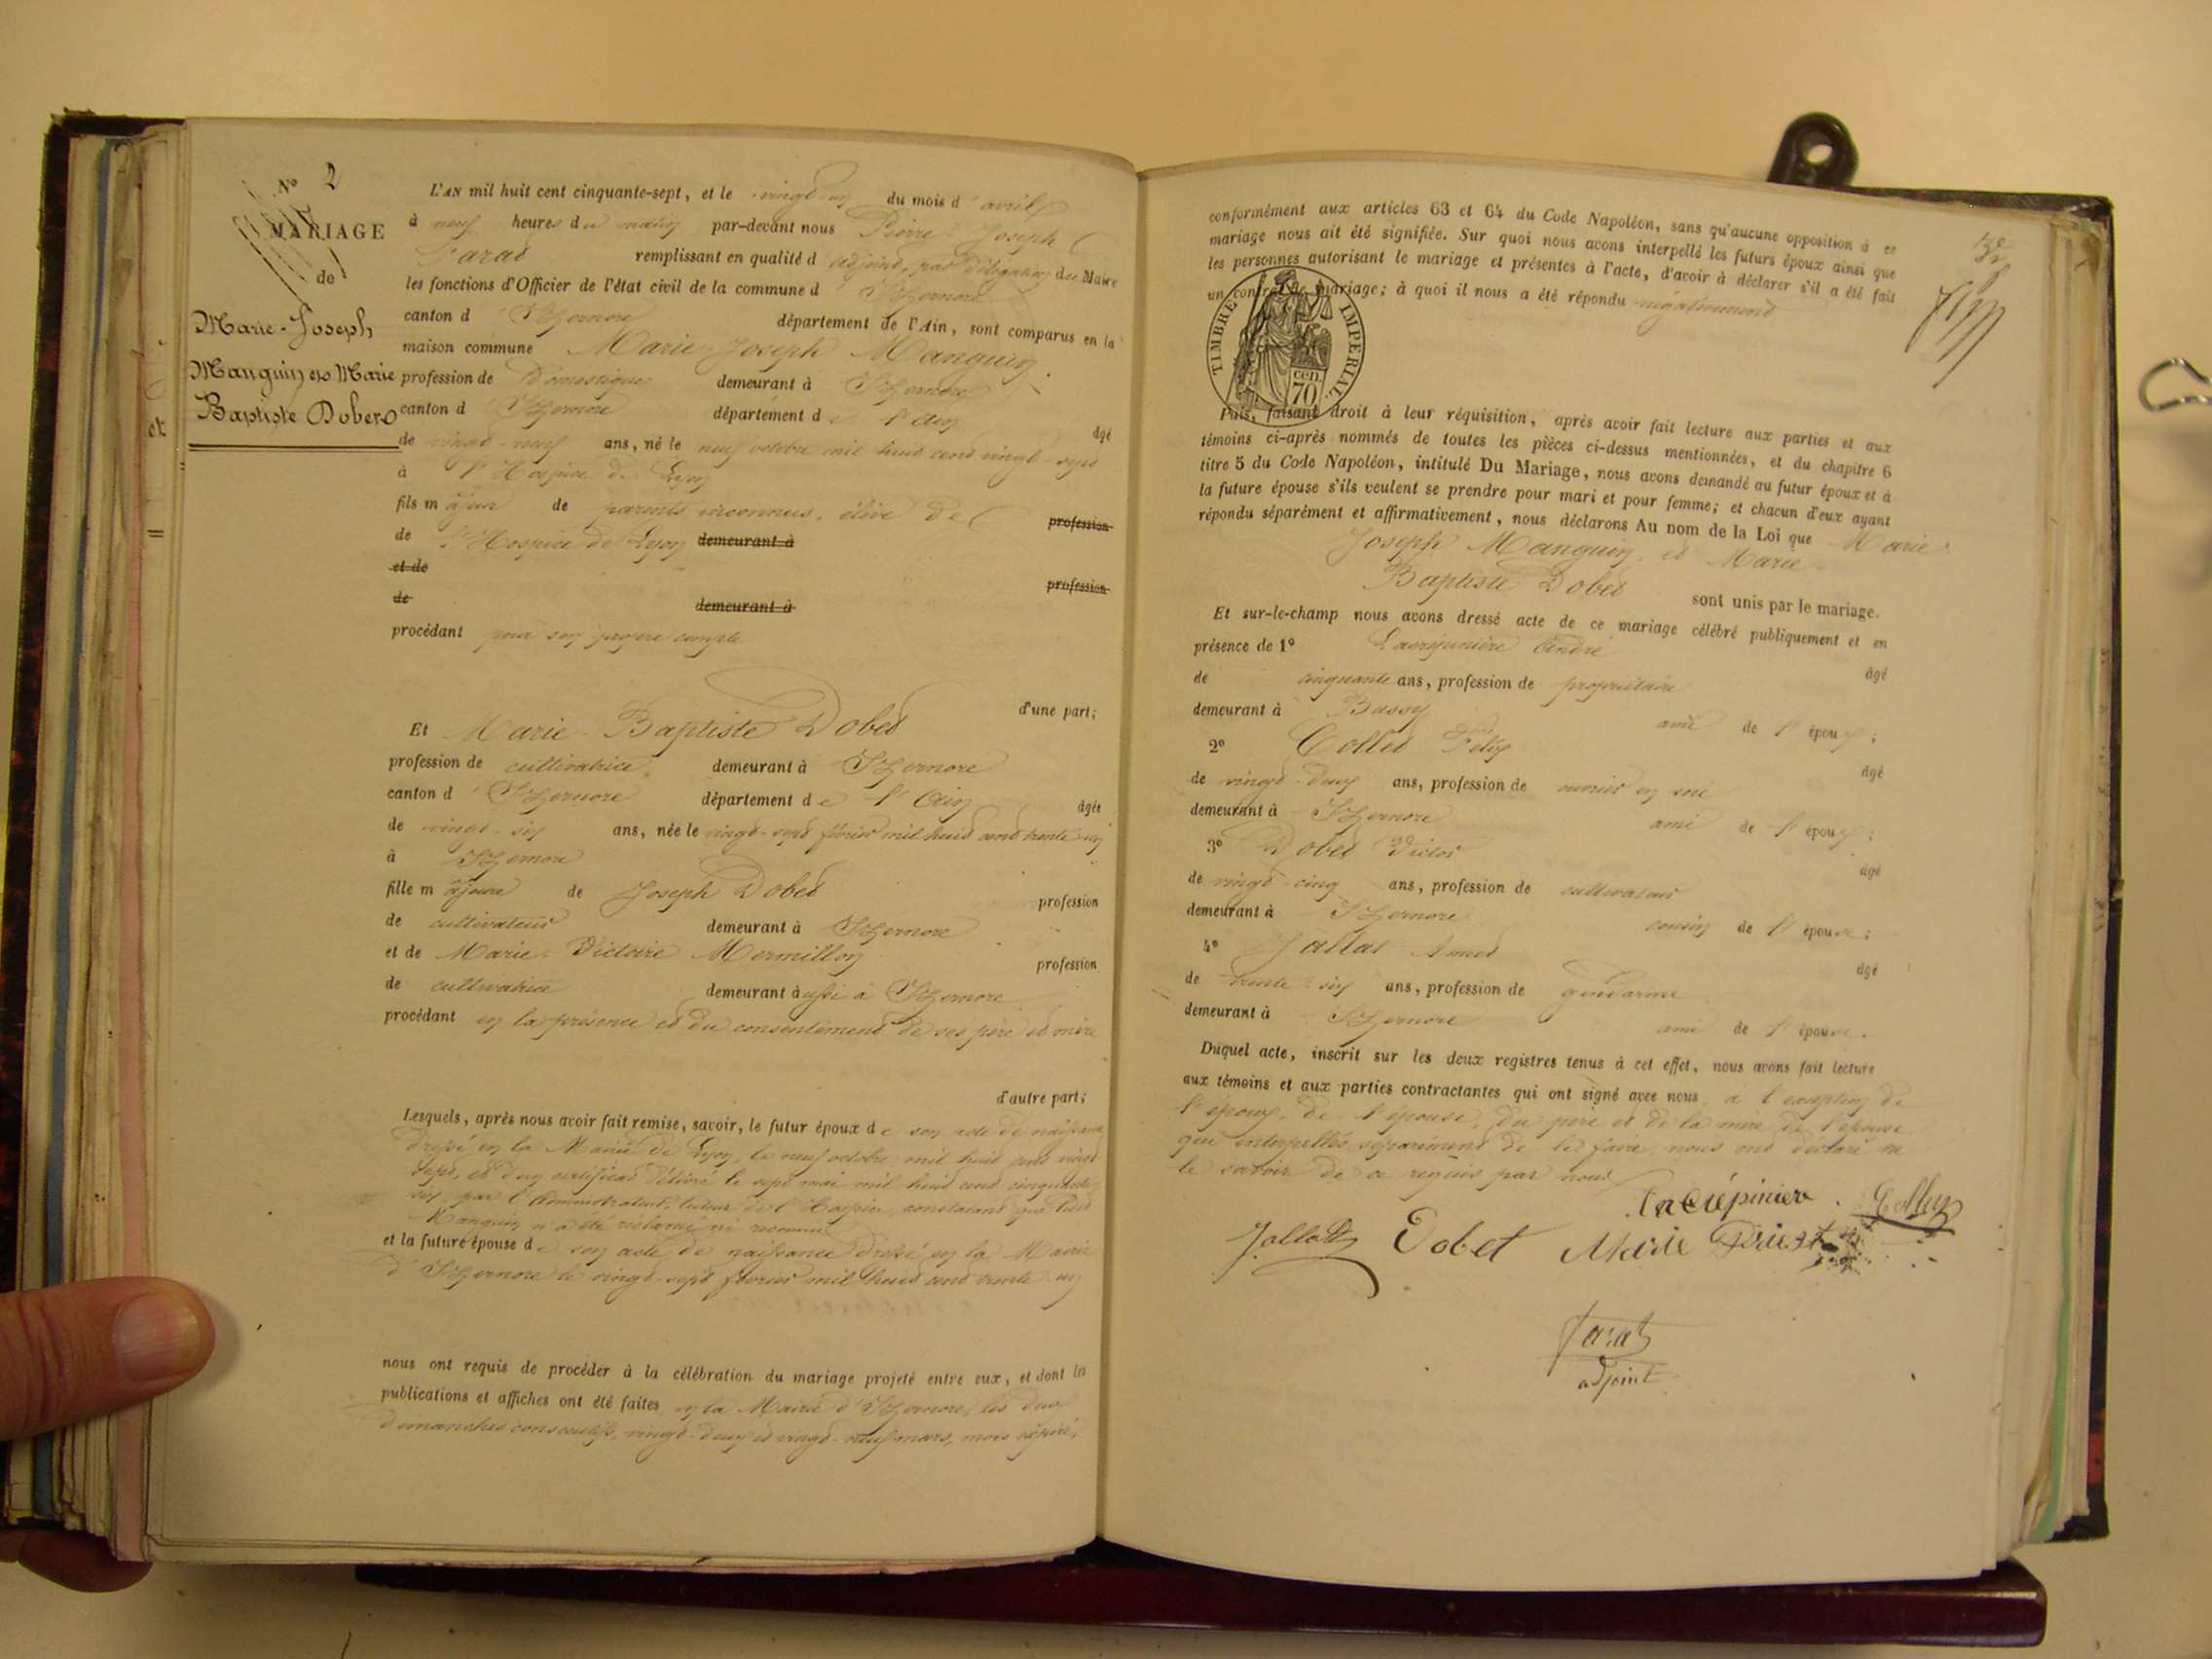 N° 2
MARIAGE
de
Marie-Joseph
Manguin et Marie
Baptiste Dobet
et
L'AN mil huit cent cinquante-sept, et le vingt-un du mois d'avril
à neuf heures du matin par-devant nous Pierre Joseph
Farat remplissant en qualité d'adjoint, par délégation du Maire
les fonctions d'Officier de l'état civil de la commune d'Izernore
canton d'Izernore département de l'Ain, sont comparus en la
maison commune Marie-Joseph Manguin
profession de Domestique demeurant à Izernore
canton d'Izernore département de l'Ain âgé
de vingt-neuf ans, né le neuf octobre mil huit cent vingt-sept
à l'Hospice de Lyon
fils majeur de parents inconnus, élève de profession
de l'Hospice de Lyon demeurant à
et de profession
de demeurant à
procédant pour son propre compte
d'une part;
Et Marie-Baptiste Dobet
profession de cultivatrice demeurant à Izernore
canton d'Izernore département de l'Ain âgée
de vingt-six ans, née le vingt-sept février mil huit cent trente-un
à Izernore
fille majeure de Joseph Dobet profession
de cultivateur demeurant à Izernore
et de Marie-Victoire Mermillon profession
de cultivatrice demeurant aussi à Izernore
procédant en la présence et du consentement de ses père et mère
d'autre part;
Lesquels, après nous avoir fait remise, savoir, le futur époux de son acte de naissance
dressé en la Mairie de Lyon, le neuf octobre mil huit cent vingt
sept, et d'un certificat délivré le sept mai mil huit cent cinquante
six, par l'Administrateur, tuteur de l'Hospice, constatant que ledit
Manguin n'a été réclamé ni reconnu
et la future épouse de son acte de naissance dressé en la Mairie
d'Izernore le vingt-sept février mil huit cent trente-un
nous ont requis de procéder à la célébration du mariage projeté entre eux, et dont les
publications et affiches ont été faites en la Mairie d'Izernore, les deux
dimanches consécutifs, vingt-deux et vingt-neuf mars, mois expiré,
conformément aux articles 63 et 64 du Code Napoléon, sans qu'aucune opposition à ce
mariage nous ait été signifiée. Sur quoi nous avons interpellé les futurs époux ainsi que
les personnes autorisant le mariage et présentes à l'acte, d'avoir à déclarer s'il a été fait
un contrat de mariage; à quoi il nous a été répondu négativement
TIMBRE IMPERIAL
cen. 70
Puis, faisant droit à leur réquisition, après avoir fait lecture aux parties et aux
témoins ci-après nommés de toutes les pièces ci-dessus mentionnées, et du chapitre 6
titre 5 du Code Napoléon, intitulé Du Mariage, nous avons demandé au futur époux et à
la future épouse s'ils veulent se prendre pour mari et pour femme; et chacun d'eux ayant
répondu séparément et affirmativement, nous déclarons Au nom de la Loi que Marie
Joseph Manguin et Marie
Baptiste Dobet sont unis par le mariage.
Et sur-le-champ nous avons dressé acte de ce mariage célébré publiquement et en
présence de 1° André âgé
de cinquante ans, profession de propriétaire
demeurant à Bussy ami de l'époux;
2° Collet Félix âgé
de vingt-deux ans, profession de ouvrier en soie
demeurant à Izernore ami de l'époux;
3° Dobet Victor âgé
de vingt-cinq ans, profession de cultivateur
demeurant à Izernore cousin de l'épouse;
4° Jallat âgé
de trente-six ans, profession de gendarme
demeurant à Izernore ami de l'épouse.
Duquel acte, inscrit sur les deux registres tenus à cet effet, nous avons fait lecture
aux témoins et aux parties contractantes qui ont signé avec nous, à l'exception de
l'époux, de l'épouse, du père et de la mère de l'épouse
qui interpellés séparément de le faire, nous ont déclaré ne
le savoir de ce requis par nous
Jallat Dobet Marie
Farat
adjoint